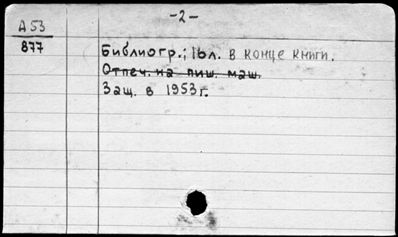 -2-
А53
877
Библиогр.; 16л. в конце книги.
Отпеч. на пиш. маш.
Защ. в 1953г.